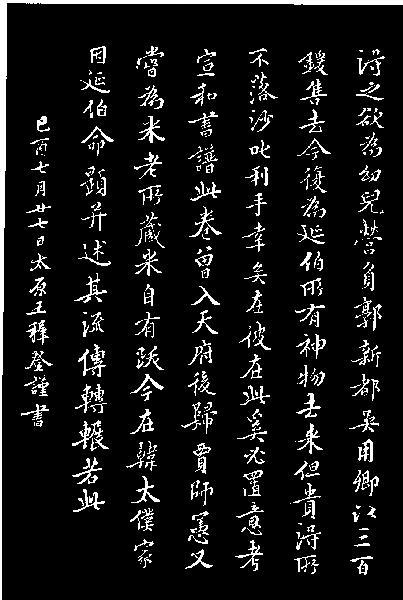 得之欲為幼兒營負郭新都吳用卿以三百
鍰售去今復為延伯所有神物去來但貴得所
不落沙叱利手幸矣在彼在此奚必置意考
宣和書譜此卷曾入天府後歸賈師憲又
嘗為米老所藏米自有跋今在韓太僕家
因延伯命題并述其流傳轉輾若此
己酉七月廿七日太原王穉登謹書